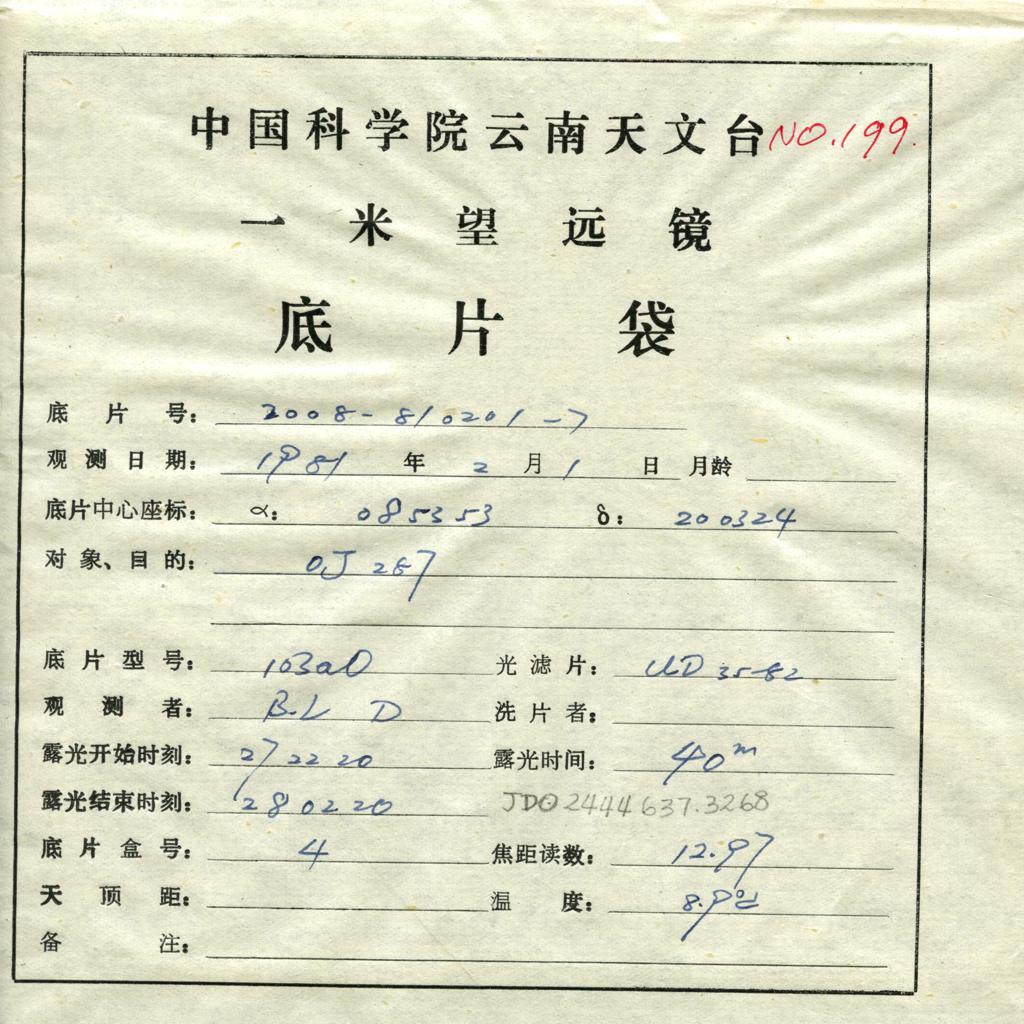 中国科学院云南天文台 NO.199.
一米望远镜
底片袋
底片号: 2008-810201-7
观测日期: 1981 年 2 月 1 日 月龄
底片中心座标: α: 085353 δ: 200324
对象、目的: OJ 287
底片型号: 103aO 光滤片:
观测者: B.L D 洗片者:
露光开始时刻: 272220 露光时间: 40m
露光结束时刻: 280220 JD⊙2444637.3268
底片盒号: 4 焦距读数: 12.97
天顶距: 温度: 8.9℃
备注: